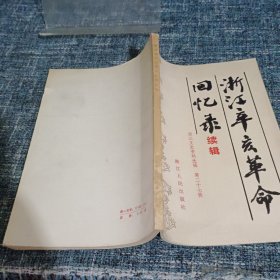 浙江辛亥革命
回忆录
续辑
浙江文史资料选辑 第二十七辑
浙江人民出版社